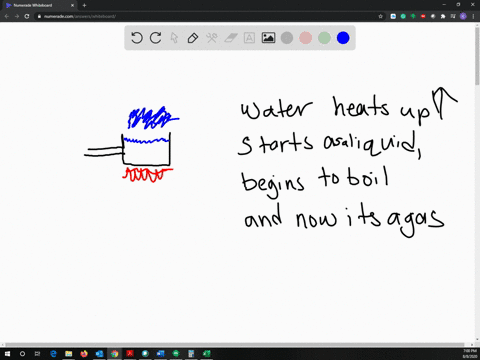 Numerade Whiteboard
numerade.com/answers/whiteboard/
water heats up
starts as a liquid,
begins to boil
and now its a gas
7:00 PM